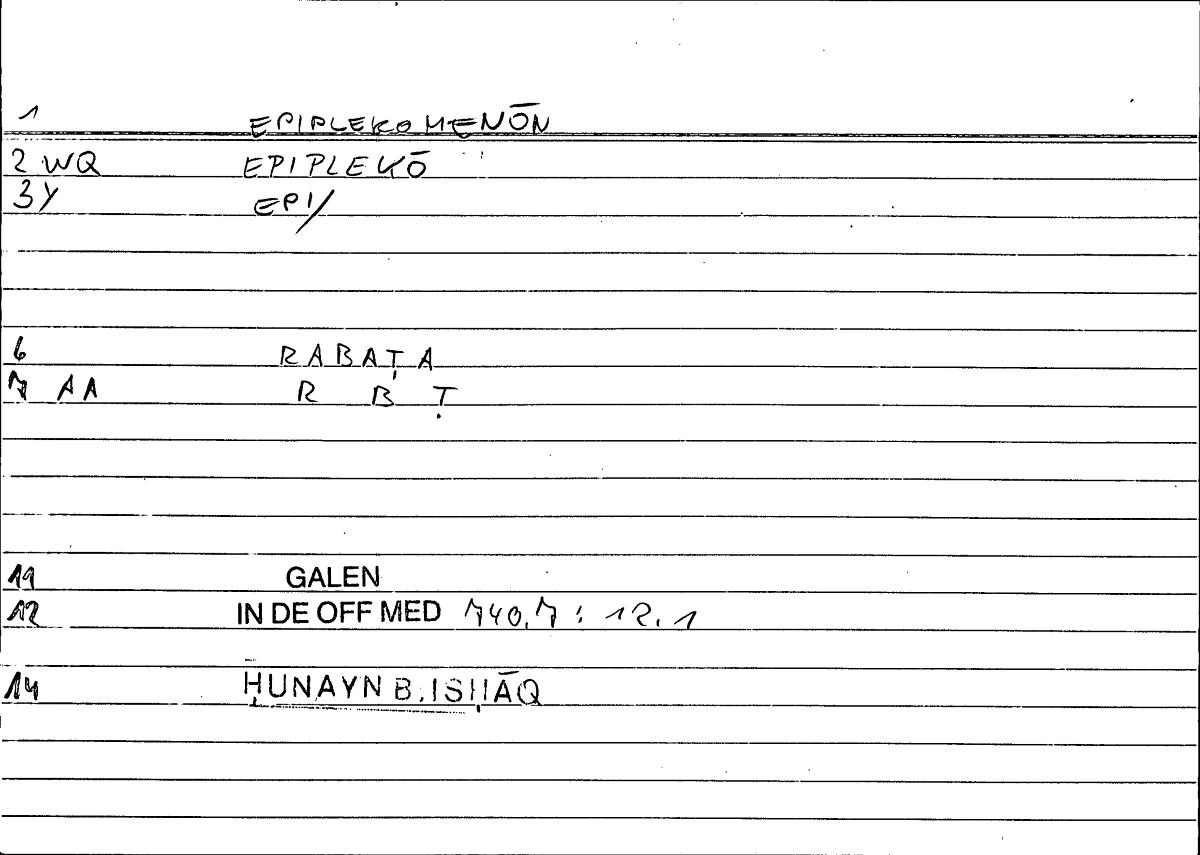 1 EPIPLEKOMENŌN
2 WQ EPIPLEKŌ
3Y EPI/
6 RABAṬA
7 AA R B Ṭ
11 GALEN
12 IN DE OFF MED 740,7 : 12.1
14 ḤUNAYN B. ISḤĀQ